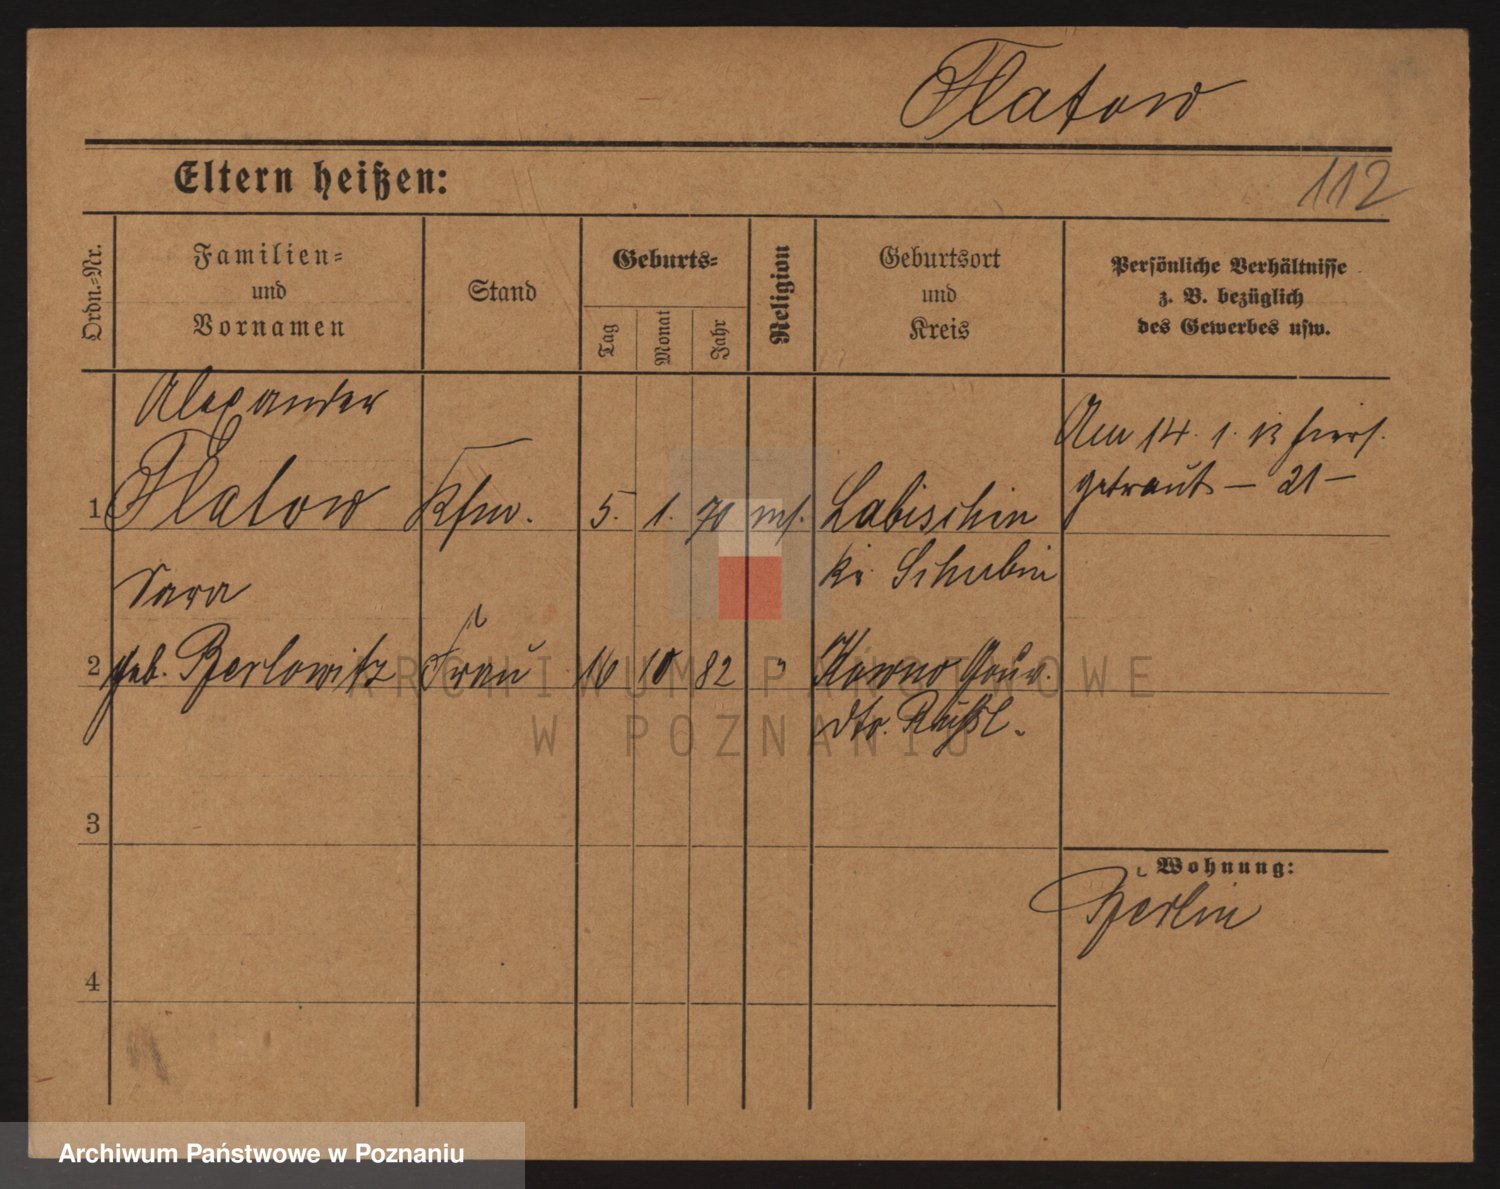 Flatow
Eltern heißen:
112
Ordn.-Nr.
Familien-
und
Vornamen
Stand
Geburts-
Tag
Monat
Jahr
Religion
Geburtsort
und
Kreis
Persönliche Verhältnisse
z. B. bezüglich
des Gewerbes usw.
Alexander
1 Flatow Kfm. 5. 1. 70 ms. Labischin
Kr. Schubin
Am 14. 1. 13 hiers.
getraut – 21 –
Sara
2 geb. Berlowitz Frau 16 10 82 " Kowno Gouv.
dto. Rußl.
3
Wohnung:
Berlin
4
ARCHIWUM PAŃSTWOWE
W POZNANIU
Archiwum Państwowe w Poznaniu